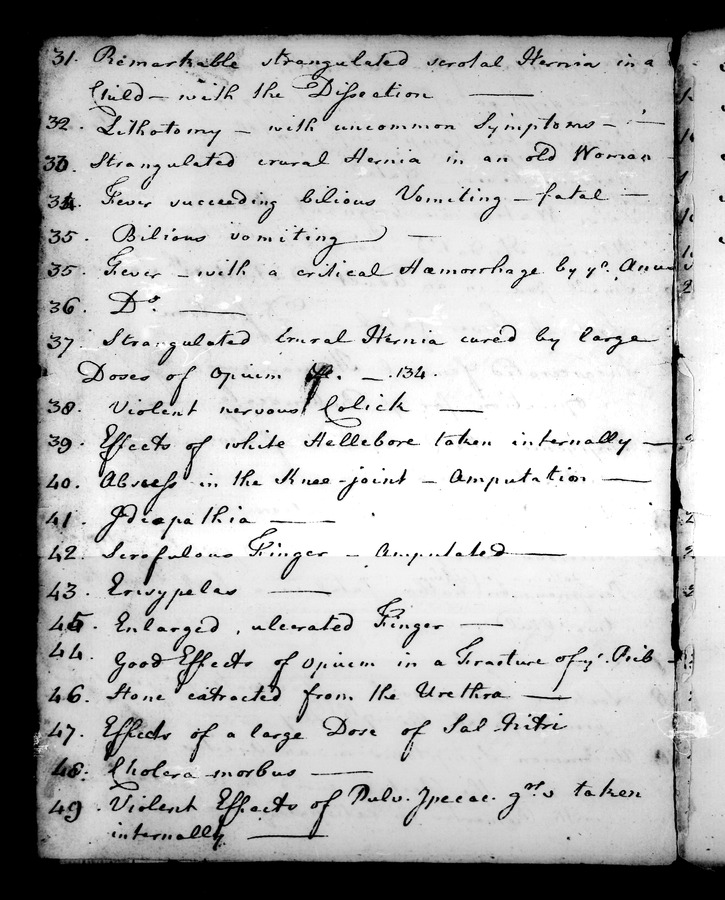 31. Remarkable strangulated scrotal Hernia in a
Child – with the Dissection —
32. Lithotomy – with uncommon Symptoms – —
33. Strangulated crural Hernia in an old Woman
34. Fever succeeding bilious Vomiting – fatal —
35. Bilious vomiting —
35. Fever – with a critical Hæmorrhage by yᵉ. Anus
36. Dᵒ. —
37. Strangulated Crural Hernia cured by large
Doses of Opium — . 134.
38. Violent nervous Colick —
39. Effects of white Hellebore taken internally —
40. Abscess in the Knee-joint – Amputation —
41. Idiopathia —
42. Scrofulous Finger – Amputated —
43. Erisypelas —
45. Enlarged, ulcerated Finger —
44. Good Effects of Opium in a Fracture of yᵉ. Rib
46. Stone extracted from the Urethra —
47. Effects of a large Dose of Sal Nitri
48. Cholera morbus —
49. Violent Effects of Pulv. Ipecac. gʳ. v taken
internally —